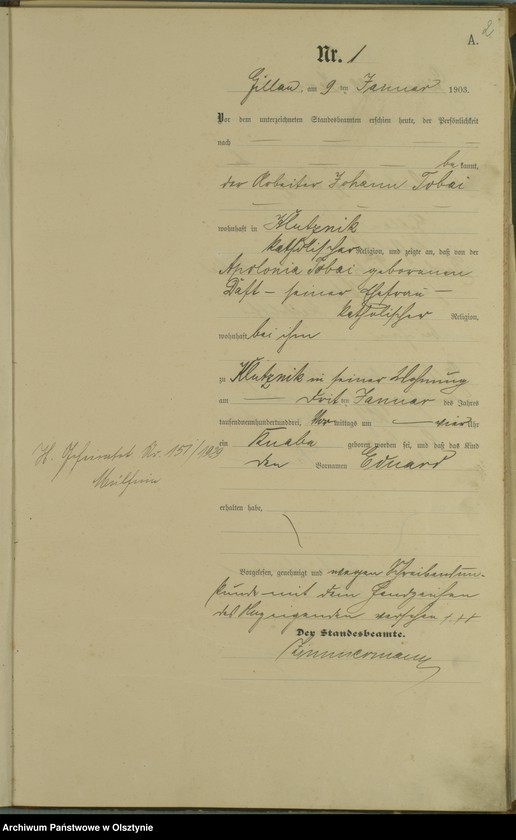 2
A.
Nr. 1
Gillau, am 9 ten Januar 1903.
Vor dem unterzeichneten Standesbeamten erschien heute, der Persönlichkeit
nach
be kannt,
der Arbeiter Johann Tobai
wohnhaft in Klutznik
katholischer Religion, und zeigte an, daß von der
Apolonia Tobai geborenen
Daft – seiner Ehefrau –
katholischer Religion,
wohnhaft bei ihm
zu Klutznik in seiner Wohnung
am drit ten Januar des Jahres
tausendneunhundertunddrei, Vor mittags um vier Uhr
ein Knabe geboren worden sei, und daß das Kind
den Vornamen Eduard
erhalten habe,
H. Geheiratet Nr. 151/1929
Mülheim
Vorgelesen, genehmigt und wegen Schreibensun-
kunde mit dem Handzeichen
des Anzeigenden versehen +++
Der Standesbeamte.
Zimmermann
Archiwum Państwowe w Olsztynie